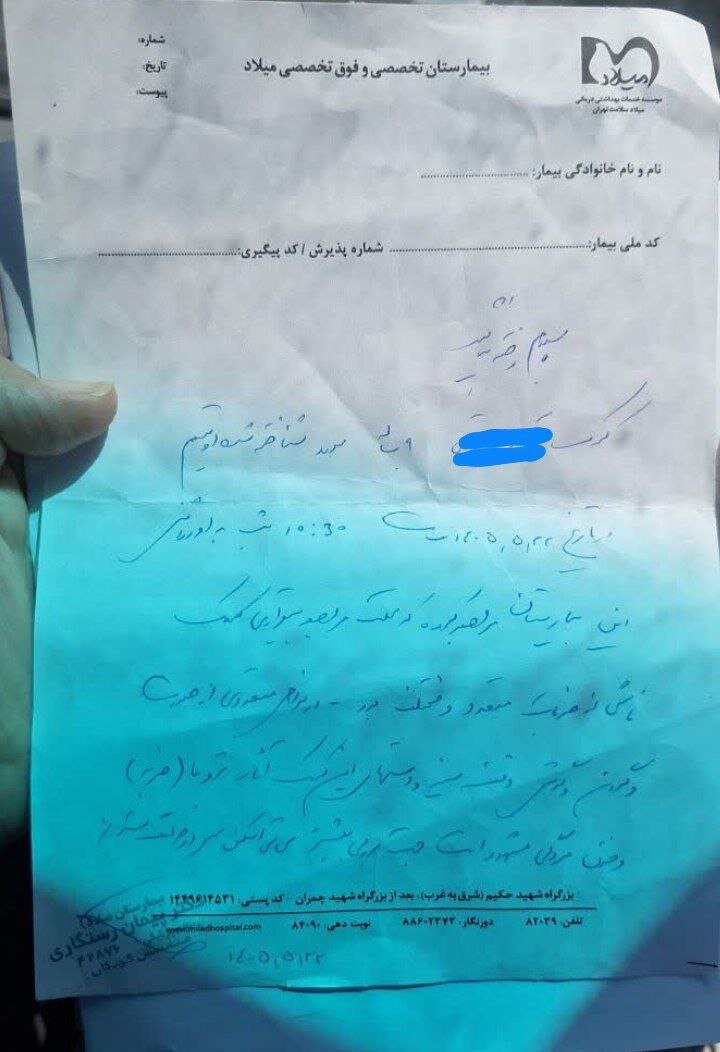 میلاد
موسسه خدمات بهداشتی درمانی
میلاد سلامت تهران
بیمارستان تخصصی و فوق تخصصی میلاد
شماره:
تاریخ:
پیوست:
نام و نام خانوادگی بیمار:
کد ملی بیمار: شماره پذیرش / کد پیگیری:
۹ ساله مورد شناخته شده اوتیسم
در تاریخ ۱۴۰۵,۵,۲۲ ساعت ۱۰:۳۰ شب به اورژانس
این بیمارستان مراجعه کرده که علت مراجعه بیقراری کودک
ناشی از ضربات متعدد و مختلف بود - در نواحی متعددی از صورت
و گردن و گوش و قفسه سینه و دستهای این کودک آثار تروما (ضربه)
و خون مردگی مشهود است جهت بررسی بیشتر سی تی اسکن سر درخواست
بزرگراه شهید حکیم (شرق به غرب)، بعد از بزرگراه شهید چمران - کد پستی: ۱۴۴۹۶۱۴۵۳۱
تلفن: ۸۲۰۳۹ دورنگار: ۸۸۶۰۲۳۷۳ نوبت دهی: ۸۴۰۹۰ www.miladhospital.com
بیمارستان میلاد
دکتر پیمان رستگاری
۴۲۸۷۶
۱۴۰۵,۵,۲۲